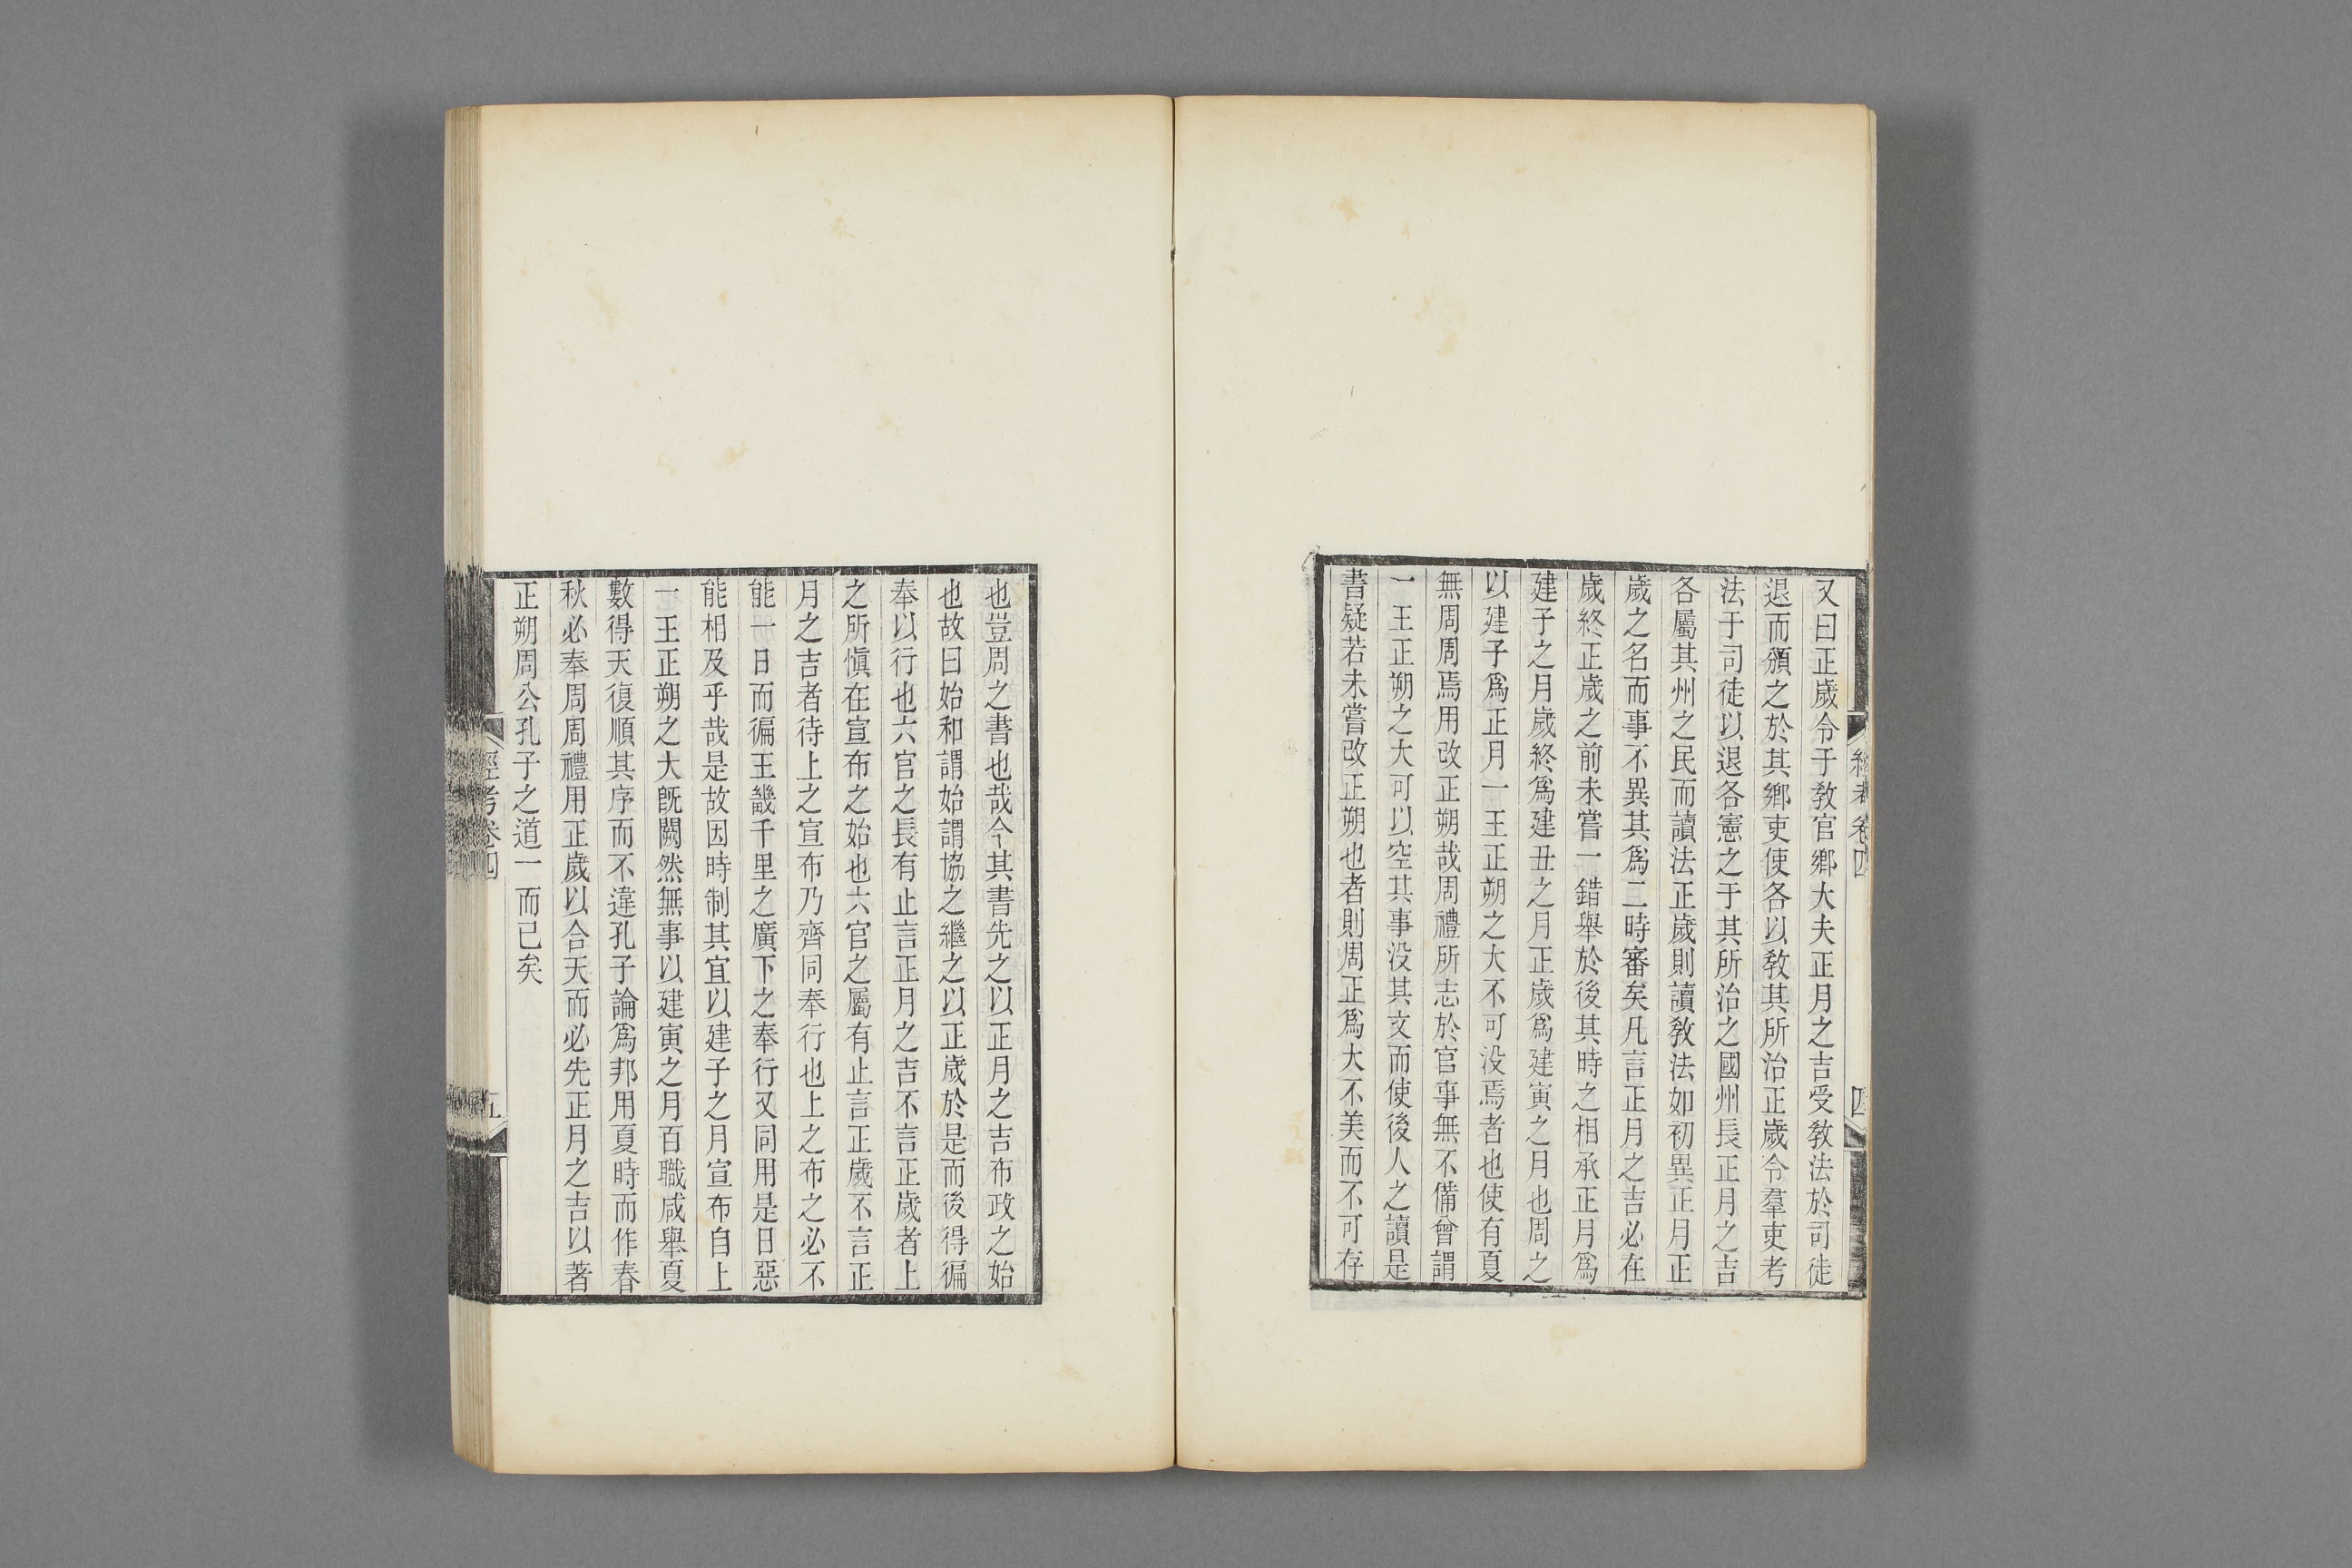 又曰正歲令于敎官鄉大夫正月之吉受敎法於司徒
退而頒之於其鄉吏使各以敎其所治正歲令羣吏考
法于司徒以退各憲之于其所治之國州長正月之吉
各屬其州之民而讀法正歲則讀敎法如初異正月正
歲之名而事不異其爲二時審矣凡言正月之吉必在
歲終正歲之前未嘗一錯舉於後其時之相承正月爲
建子之月歲終爲建丑之月正歲爲建寅之月也周之
以建子爲正月一王正朔之大不可没焉者也使有夏
無周周焉用改正朔哉周禮所志於官事無不備曾謂
一王正朔之大可以空其事没其文而使後人之讀是
書疑若未嘗改正朔也者則周正爲大不美而不可存
經考卷四
四
也豈周之書也哉今其書先之以正月之吉布政之始
也故曰始和謂始謂協之繼之以正歲於是而後得徧
奉以行也六官之長有止言正月之吉不言正歲者上
之所愼在宣布之始也六官之屬有止言正歲不言正
月之吉者待上之宣布乃齊同奉行也上之布之必不
能一日而徧王畿千里之廣下之奉行又同用是日惡
能相及乎哉是故因時制其宜以建子之月宣布自上
一王正朔之大旣闕然無事以建寅之月百職咸舉夏
數得天復順其序而不違孔子論爲邦用夏時而作春
秋必奉周周禮用正歲以合天而必先正月之吉以著
正朔周公孔子之道一而已矣
經考卷四
五